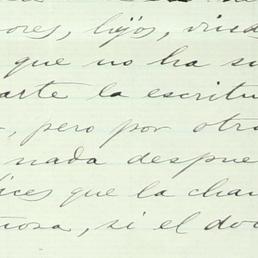 ores, hijos, viud
que no ha su
arte la escritu
, pero por otra
nada despue
ices que la cha
osa, si el do